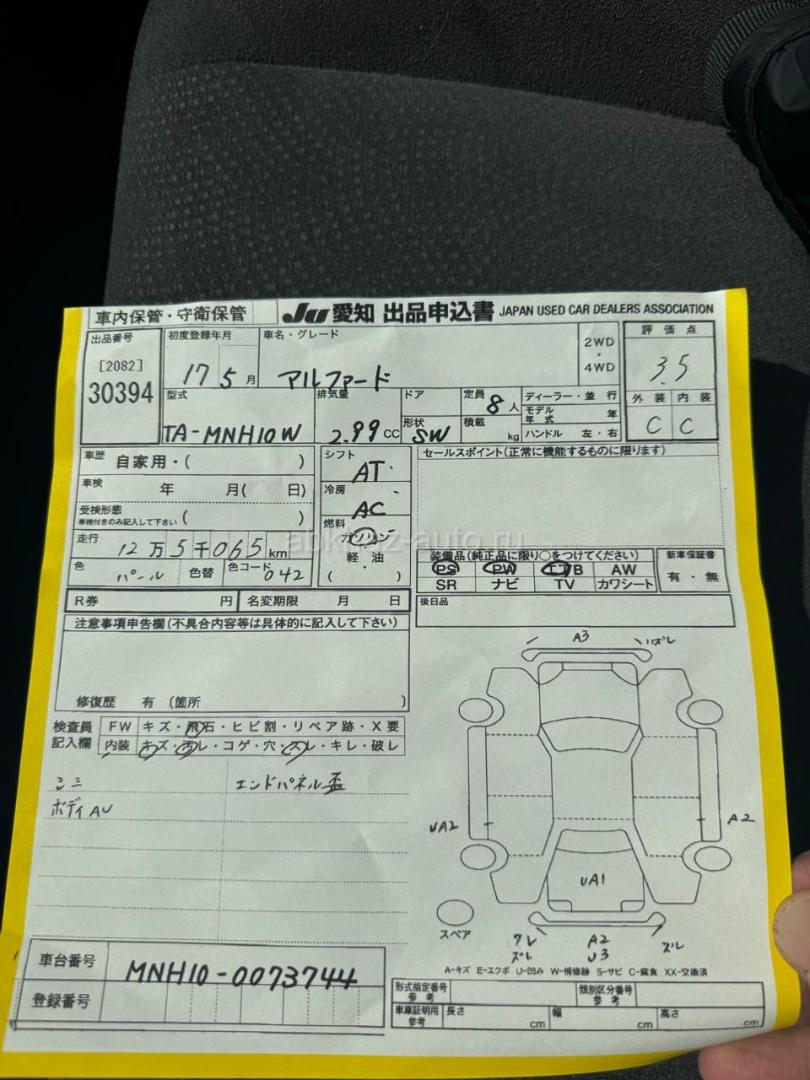 車内保管・守衛保管 JU 愛知 出品申込書 JAPAN USED CAR DEALERS ASSOCIATION
出品番号 初度登録年月 車名・グレード 2WD ・ 4WD 評価点
[2082] 17 5月 アルファード 3.5
30394
型式 排気量 ドア 定員 8人 ディーラー・並行 外装 内装
TA-MNH10W 2.99cc 形状 SW 積載 kg モデル年式 年 C C
ハンドル 左・右
車歴 自家用・( ) シフト AT セールスポイント(正常に機能するものに限ります)
車検 年 月( 日) 冷房 AC
受検形態 車検付きのみ記入して下さい ( ) 燃料 ガソリン
走行 12万5千065km 軽・油 ( )
abkhaz-auto.ru
装備品(純正品に限り○をつけてください) 新車保証書
色 パール 色替 色コード 042 PS PW エアB AW 有・無
SR ナビ TV カワシート
R券 円 名変期限 月 日 後日品
注意事項申告欄(不具合内容等は具体的に記入して下さい)
修復歴 有 (箇所 )
検査員記入欄 FW キズ・飛石・ヒビ割・リペア跡・X要
内装 キズ・汚レ・コゲ・穴・スレ・キレ・破レ
エンドパネル歪
ボディAU
A3
UA2 A2
UA1
スペア
ワレ A2 ズレ
ズレ U3
A-キズ E-エクボ U-凹み W-補修跡 S-サビ C-腐食 XX-交換済
車台番号 MNH10-0073744
登録番号
形式指定番号 参考 類別区分番号 参考
車庫証明用 参考 長さ cm 幅 cm 高さ cm